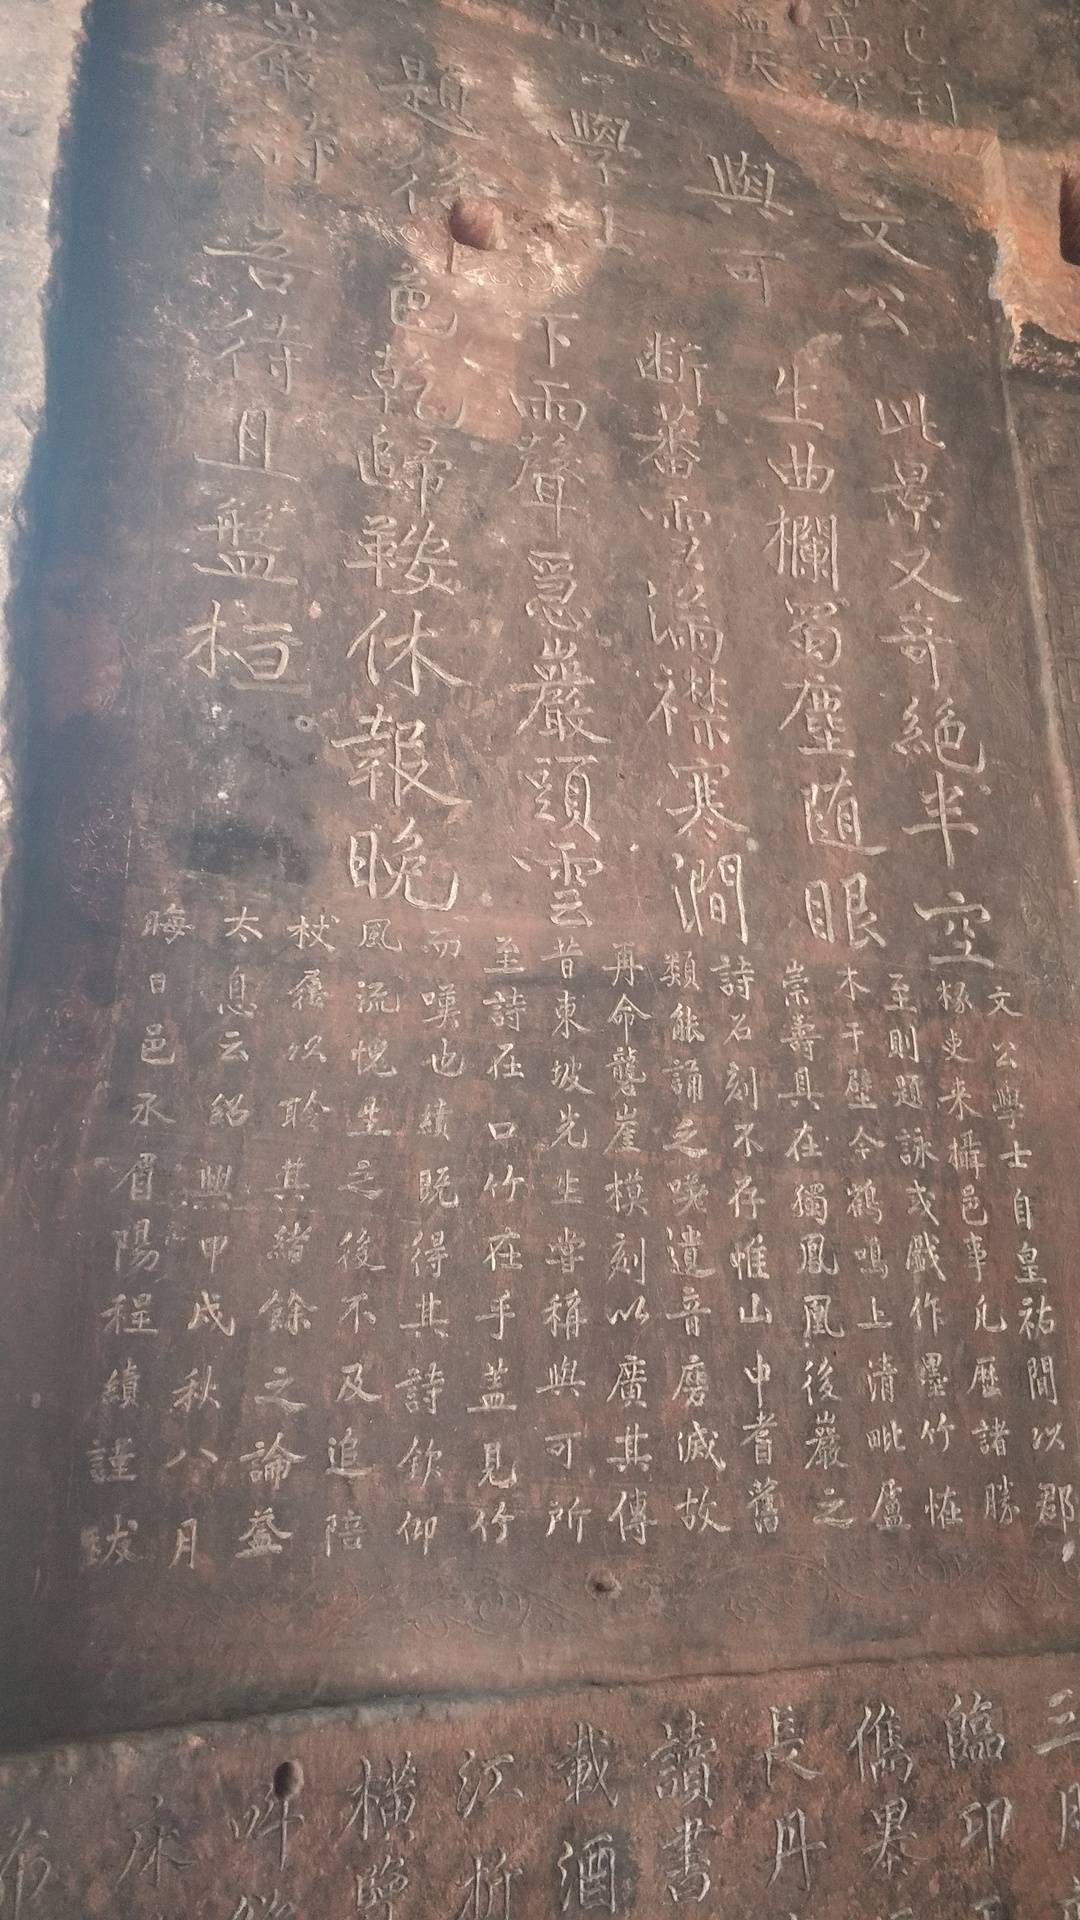 文公
與可
學士
題後
巖詩
此景又奇絕半空
生曲欄蜀塵随眼
斷蕃雪滿襟寒澗
下雨聲急巖頭雲
色乾歸鞍休報晚
吾待且盤桓
文公學士自皇祐間以郡
掾吏來攝邑事凡歷諸勝
至則題詠或戲作墨竹恠
木于壁今鶴鳴上清毗盧
崇壽具在獨鳳凰後巖之
詩石刻不存惟山中耆舊
類能誦之嘆遺音磨滅故
再命礱崖模刻以廣其傳
昔東坡先生嘗稱與可所
至詩在口竹在手蓋見竹
而嘆也續既得其詩欽仰
風流愧生之後不及追陪
杖屨以聆其緒餘之論益
太息云紹興甲戌秋八月
晦日邑丞眉陽程續謹跋
臨卭
儁
長丹
讀書
載酒
江
橫